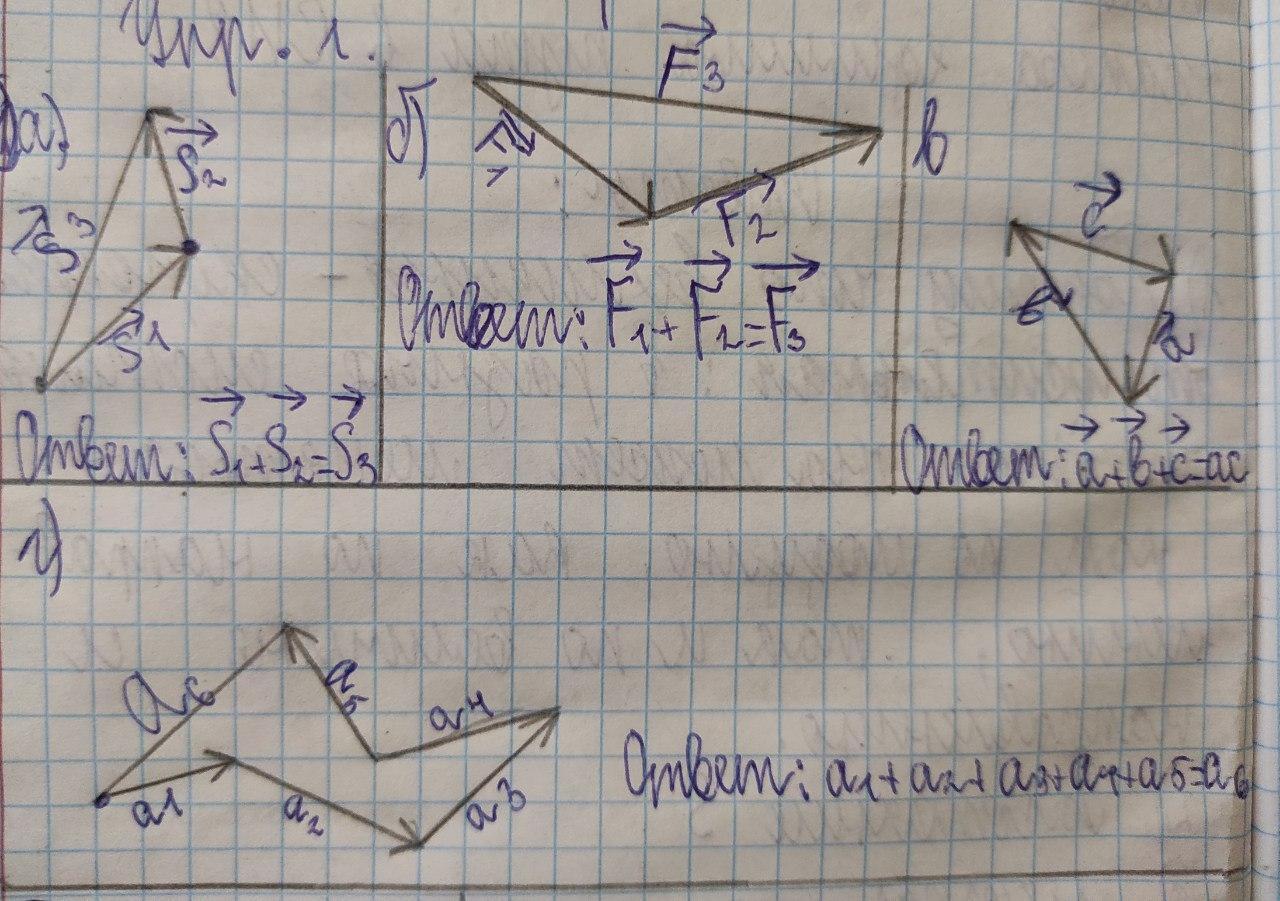 Упр. 1.
а)
S₃
S₂
S₁
Ответ: S₁+S₂=S₃
б)
F₃
F₁
F₂
Ответ: F₁+F₂=F₃
в
c
в
a
Ответ: a+в+c=ac
г)
a₆
a₅
a₄
a₁
a₂
a₃
Ответ: a₁+a₂+a₃+a₄+a₅=a₆